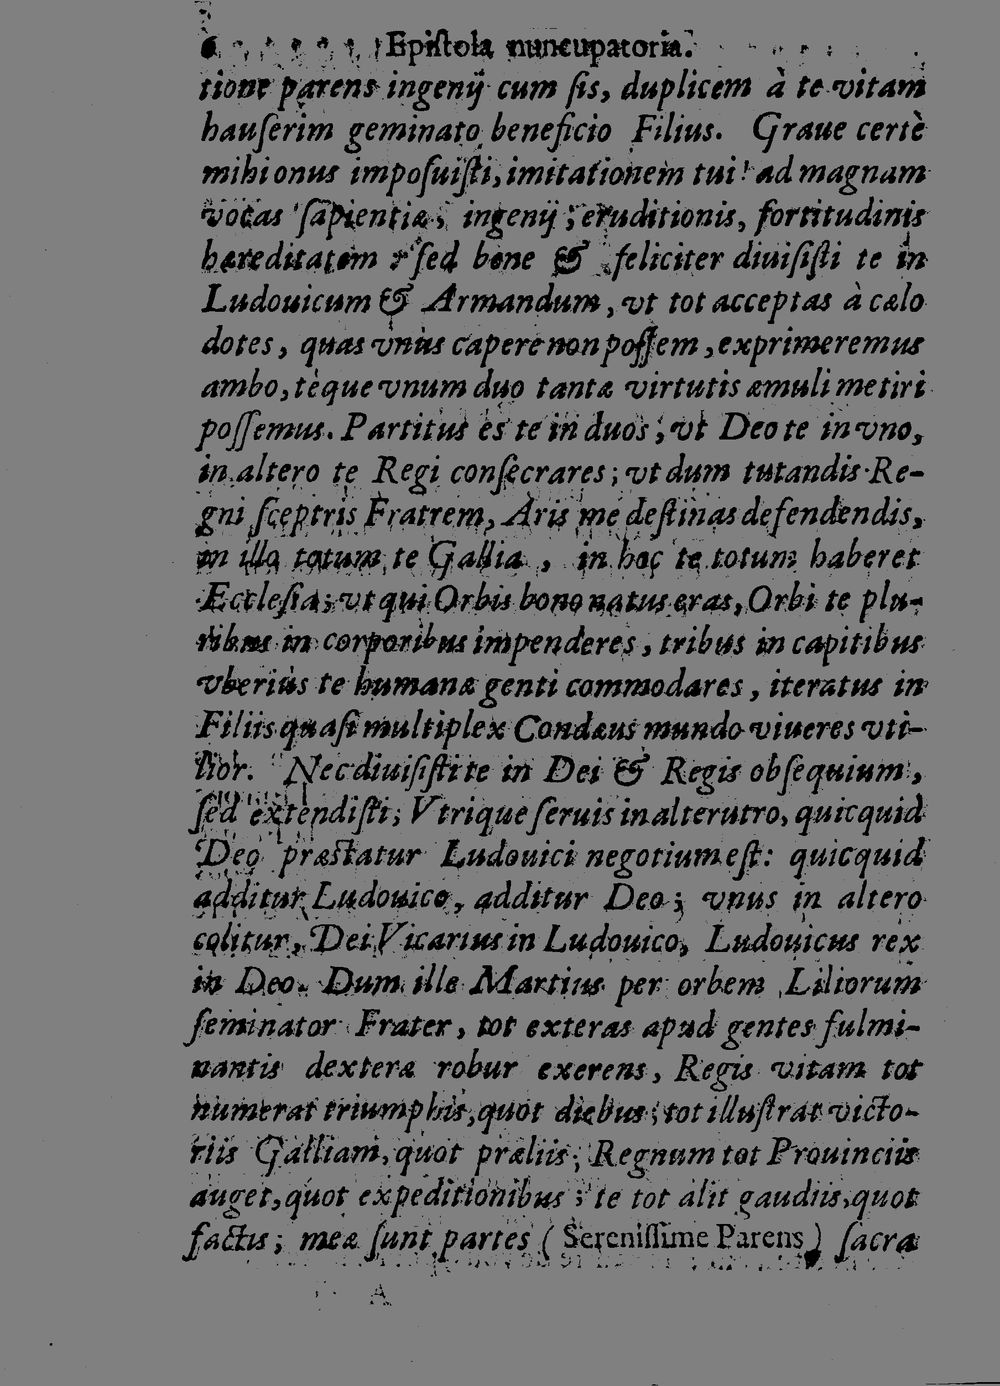 6 Epistola nuncupatoria.
tione parens ingenij cum sis, duplicem à te vitam
hauserim geminato beneficio Filius. Graue certè
mihi onus imposuisti, imitationem tui! ad magnam
vocas sapientiæ, ingenij, eruditionis, fortitudinis
hereditatem: sed bene & feliciter diuisisti te in
Ludouicum & Armandum, vt tot acceptas à cælo
dotes, quas vnus capere non possem, exprimeremus
ambo, tèque vnum duo tantæ virtutis æmuli metiri
possemus. Partitus es te in duos; vt Deo te in vno,
in altero te Regi consecrares; vt dum tutandis Re-
gni sceptris Fratrem, Aris me destinas defendendis,
in illo totum te Gallia, in hoc te totum haberet
Ecclesia; vt qui Orbis bono natus eras, Orbi te plu-
ribus in corporibus impenderes, tribus in capitibus
vberiùs te humanæ genti commodares, iteratus in
Filiis quasi multiplex Condæus mundo viueres vti-
lior. Nec diuisisti te in Dei & Regis obsequium,
sed extendisti; Vtrique seruis in alterutro, quicquid
Deo præstatur Ludouici negotium est: quicquid
additur Ludouico, additur Deo; vnus in altero
colitur, Dei Vicarius in Ludouico, Ludouicus rex
in Deo. Dum ille Martius per orbem Liliorum
seminator Frater, tot exteras apud gentes fulmi-
nantis dexteræ robur exerens, Regis vitam tot
numerat triumphis, quot diebus; tot illustrat victo-
riis Galliam, quot præliis; Regnum tot Prouinciis
auget, quot expeditionibus; te tot alit gaudiis, quot
factis; meæ sunt partes (Serenissime Parens) sacra
A